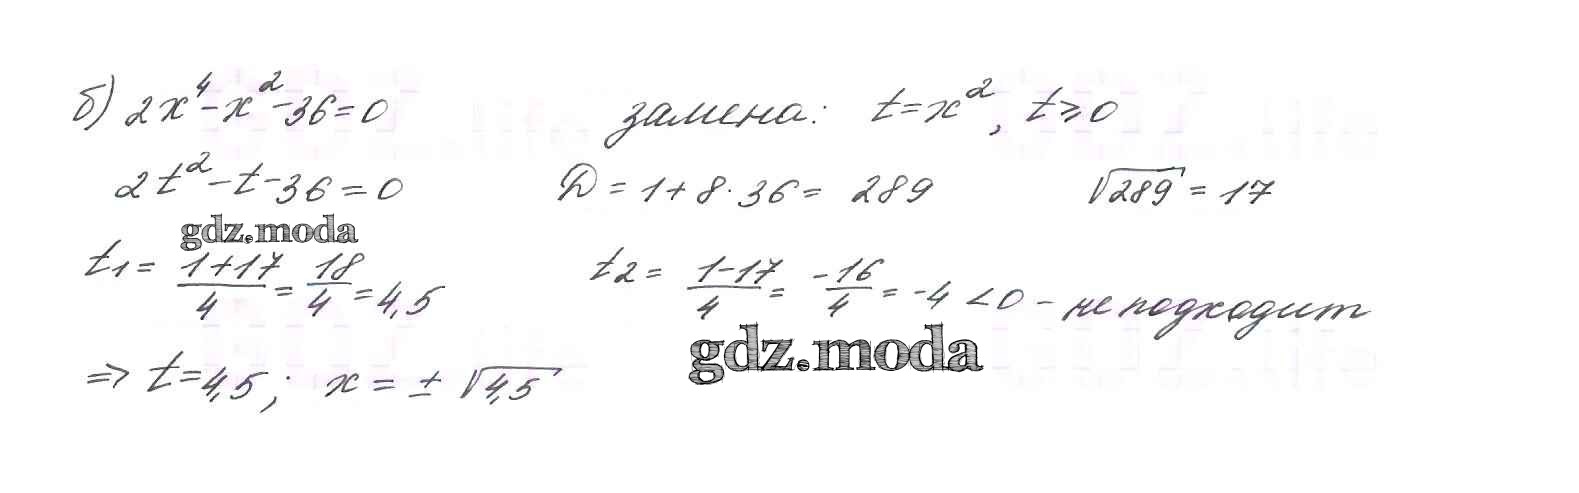 б) 2x⁴-x²-36=0 замена: t=x², t≥0
2t²-t-36=0 D=1+8·36= 289 √289 = 17
gdz.moda
t₁= (1+17)/4 = 18/4 = 4,5 t₂= (1-17)/4 = -16/4 = -4 <0 - не подходит
gdz.moda
=> t=4,5; x = ± √4,5